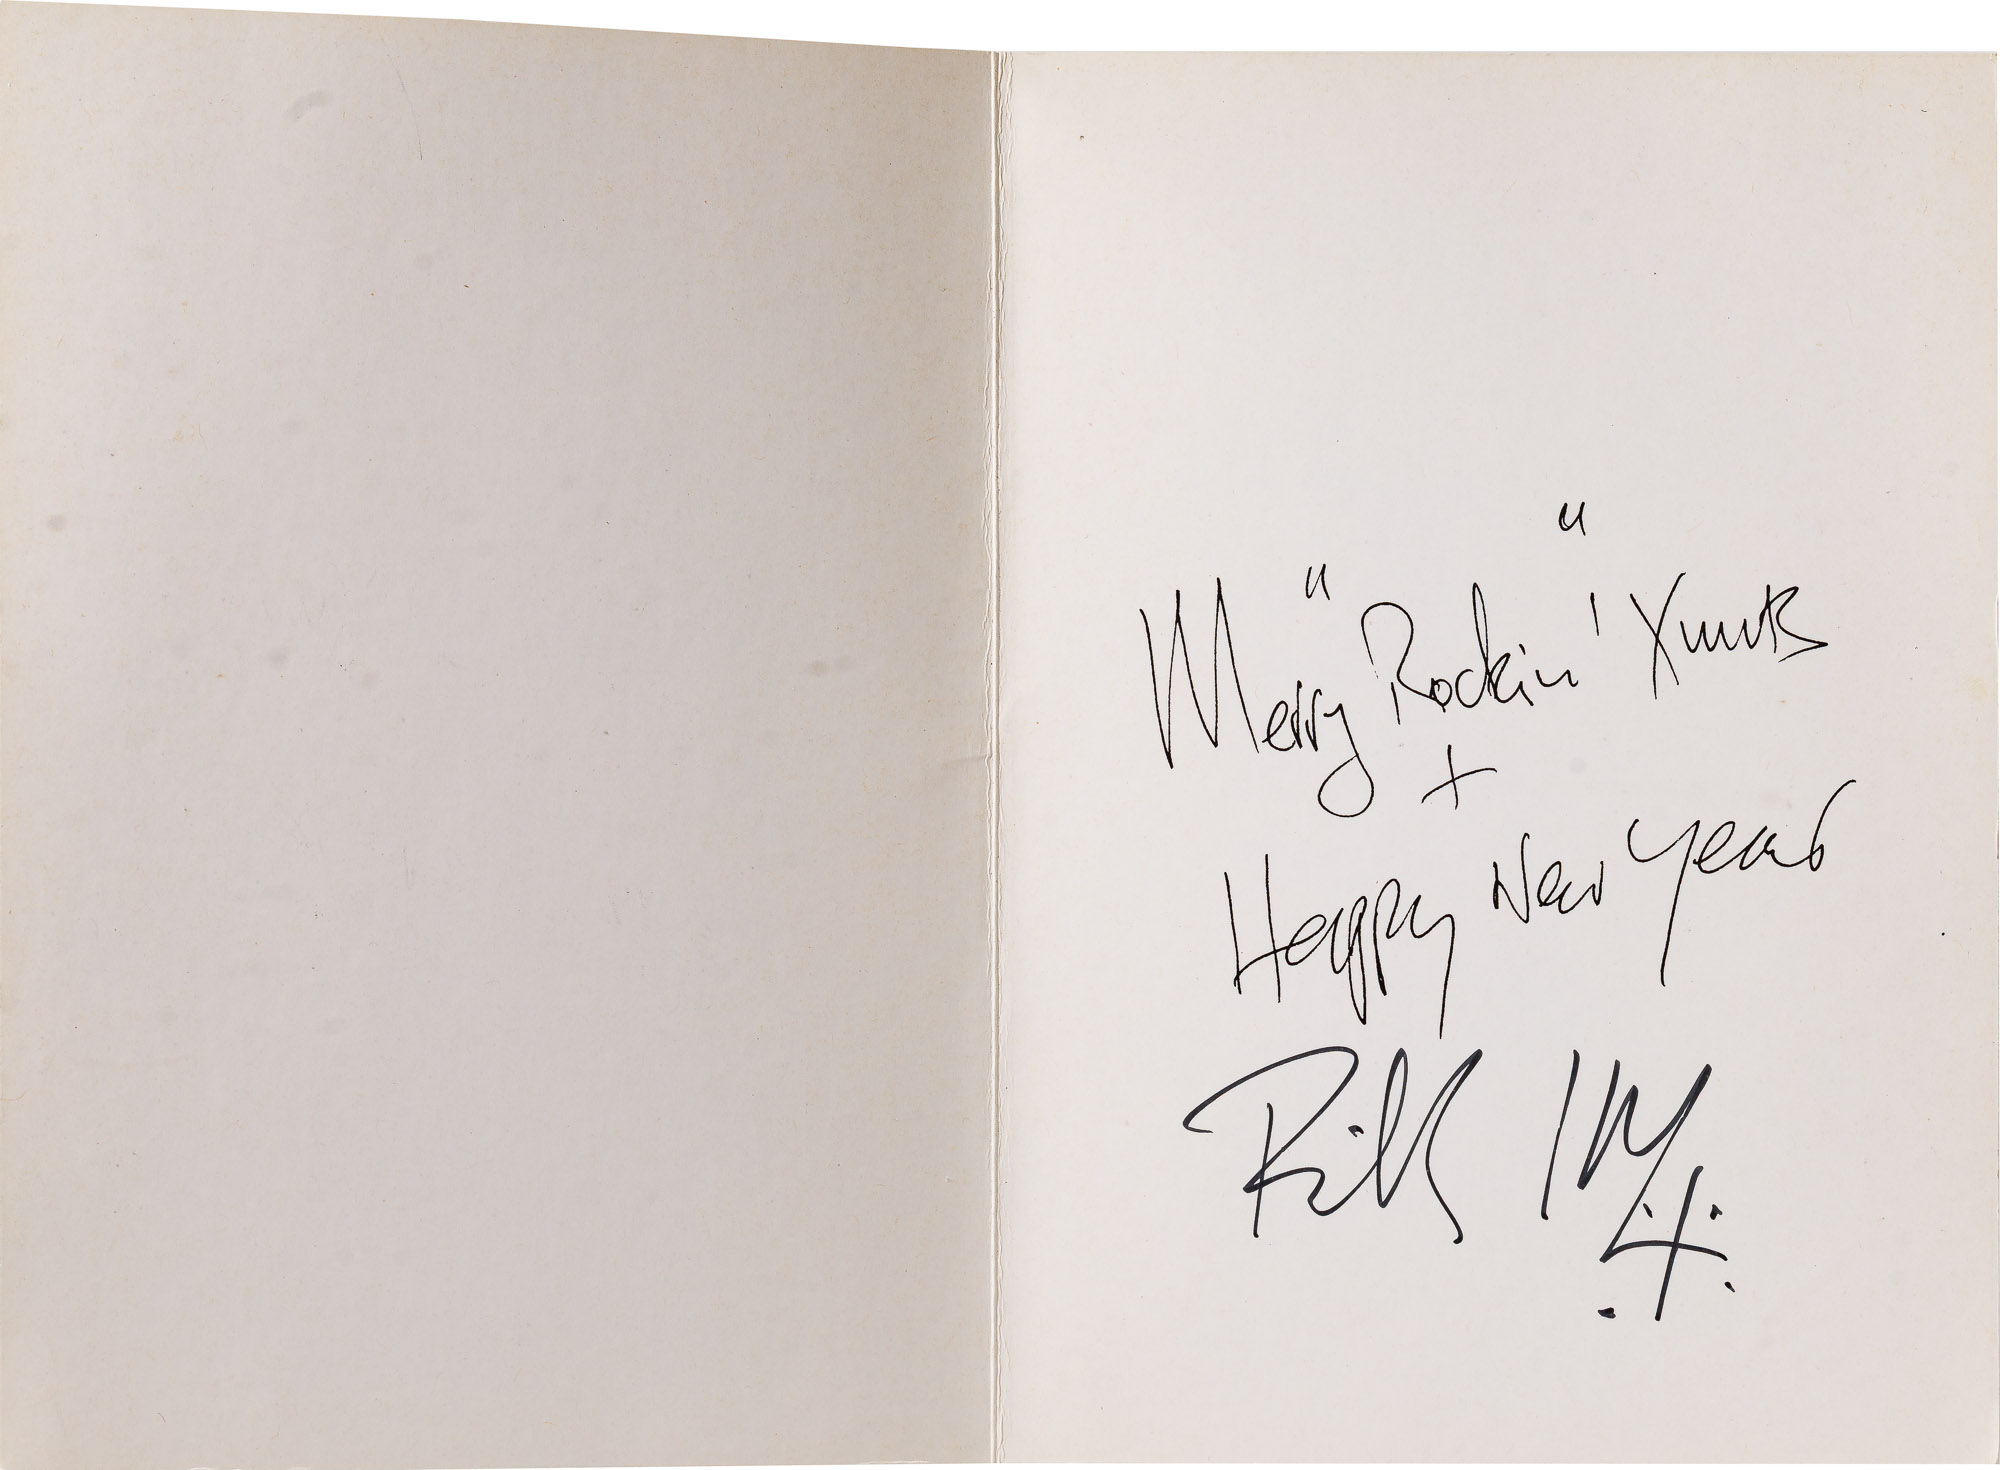 Merry "Rockin'" Xmas
+
Happy New Year